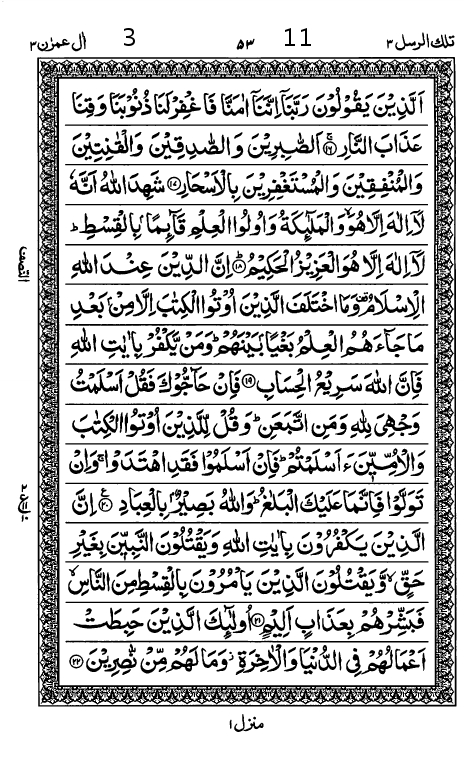 تلك الرسل ٣
11
٥٣
3
أل عمرٰن ٣
اَلَّذِيْنَ يَقُوْلُوْنَ رَبَّنَاۤ اِنَّنَاۤ اٰمَنَّا فَاغْفِرْ لَنَا ذُنُوْبَنَا وَقِنَا
عَذَابَ النَّارِ ۝۱۶ اَلصّٰبِرِيْنَ وَالصّٰدِقِيْنَ وَالْقٰنِتِيْنَ
وَالْمُنْفِقِيْنَ وَالْمُسْتَغْفِرِيْنَ بِالْاَسْحَارِ ۝۱۷ شَهِدَ اللّٰهُ اَنَّهٗ
لَاۤ اِلٰهَ اِلَّا هُوَ ۙ وَالْمَلٰٓئِكَةُ وَاُولُوا الْعِلْمِ قَآئِمًۢا بِالْقِسْطِ ؕ
لَاۤ اِلٰهَ اِلَّا هُوَ الْعَزِيْزُ الْحَكِيْمُ ۝۱۸ اِنَّ الدِّيْنَ عِنْدَ اللّٰهِ
الْاِسْلَامُ ۫ وَمَا اخْتَلَفَ الَّذِيْنَ اُوْتُوا الْكِتٰبَ اِلَّا مِنْۢ بَعْدِ
مَا جَآءَهُمُ الْعِلْمُ بَغْيًۢا بَيْنَهُمْ ؕ وَمَنْ يَّكْفُرْ بِاٰيٰتِ اللّٰهِ
فَاِنَّ اللّٰهَ سَرِيْعُ الْحِسَابِ ۝۱۹ فَاِنْ حَآجُّوْكَ فَقُلْ اَسْلَمْتُ
وَجْهِيَ لِلّٰهِ وَمَنِ اتَّبَعَنِ ؕ وَقُلْ لِّلَّذِيْنَ اُوْتُوا الْكِتٰبَ
وَالْاُمِّيّٖنَ ءَاَسْلَمْتُمْ ؕ فَاِنْ اَسْلَمُوْا فَقَدِ اهْتَدَوْا ۚ وَاِنْ
تَوَلَّوْا فَاِنَّمَا عَلَيْكَ الْبَلٰغُ ؕ وَاللّٰهُ بَصِيْرٌۢ بِالْعِبَادِ ۝۲۰ اِنَّ
الَّذِيْنَ يَكْفُرُوْنَ بِاٰيٰتِ اللّٰهِ وَيَقْتُلُوْنَ النَّبِيّٖنَ بِغَيْرِ
حَقٍّ ۙ وَّيَقْتُلُوْنَ الَّذِيْنَ يَاْمُرُوْنَ بِالْقِسْطِ مِنَ النَّاسِ ۙ
فَبَشِّرْهُمْ بِعَذَابٍ اَلِيْمٍ ۝۲۱ اُولٰٓئِكَ الَّذِيْنَ حَبِطَتْ
اَعْمَالُهُمْ فِي الدُّنْيَا وَالْاٰخِرَةِ ؗ وَمَا لَهُمْ مِّنْ نّٰصِرِيْنَ ۝۲۲
النصف
منزل ۱